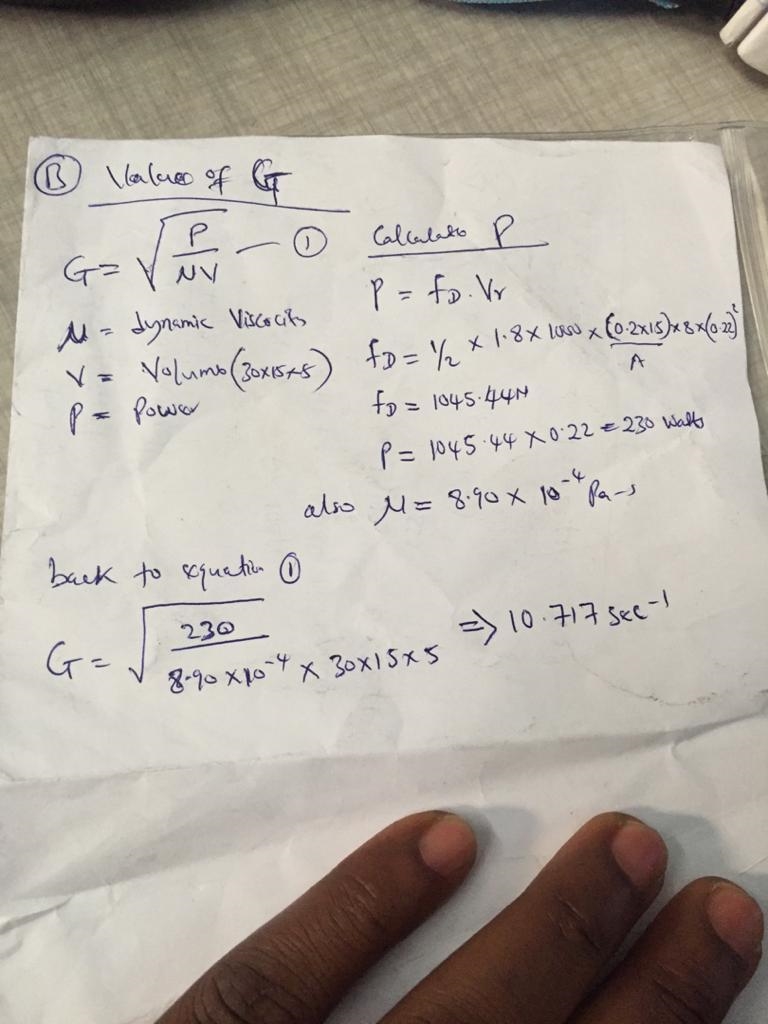 B Values of G
G = √(P/μV) — ①
μ = dynamic Viscocity
V = Volume (30x15x5)
P = Power
Calculate P
P = fD. Vr
fD = 1/2 x 1.8 x 1000 x (0.2x15) x 8 x (0.22)²
A
fD = 1045.44N
P = 1045.44 x 0.22 = 230 watts
also μ = 8.90 x 10⁻⁴ Pa-s
back to equation ①
G = √(230/8.90 x 10⁻⁴ x 30x15x5) => 10.717 sec⁻¹